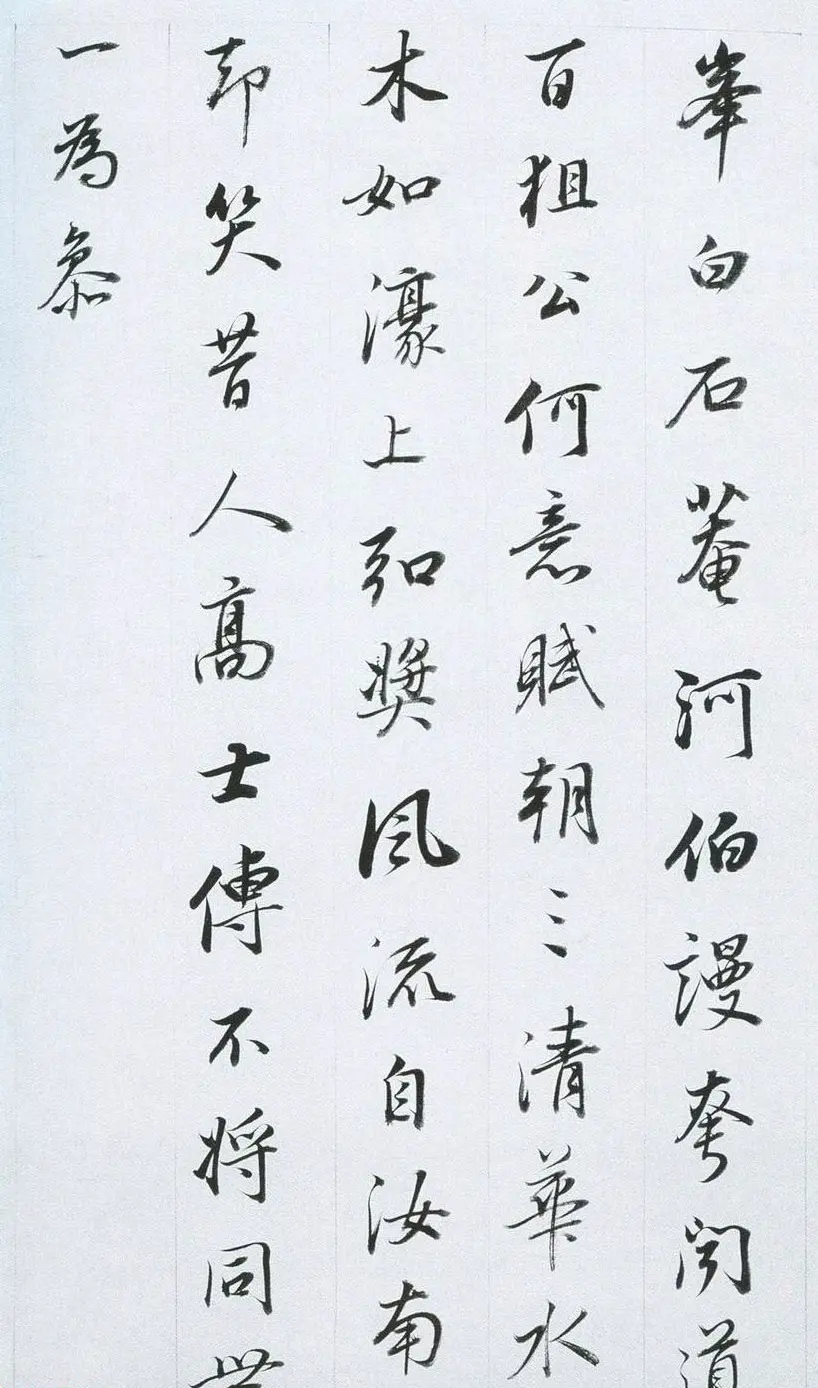 峯白石菴河伯謾夸聞道
百狙公何意賦朝三清華水
木如濠上弘奬風流自汝南
却笑昔人高士傳不將同世
一為叅